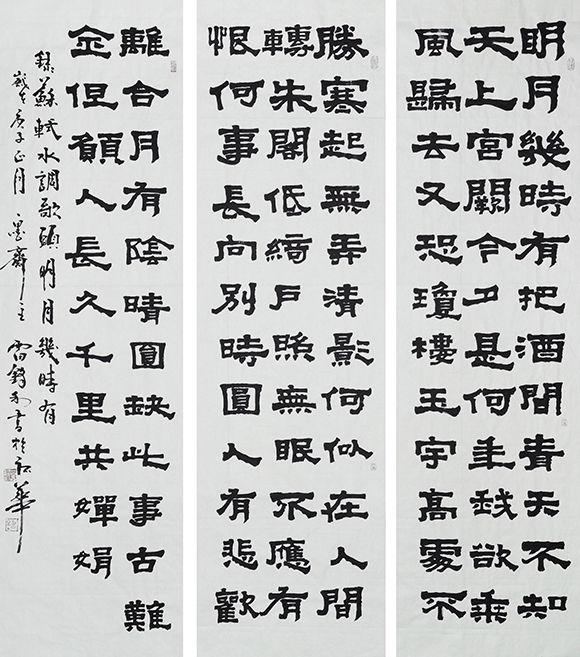 明月幾時有把酒問青天不知
天上宮闕今夕是何年我欲乘
風歸去又恐瓊樓玉宇高處不
勝寒起舞弄清影何似在人間
轉朱閣低綺戶照無眠不應有
恨何事長向別時圓人有悲歡
離合月有陰晴圓缺此事古難
全但願人長久千里共嬋娟
錄蘇軾水調歌頭明月幾時有
歲在庚子正月齋主書於華